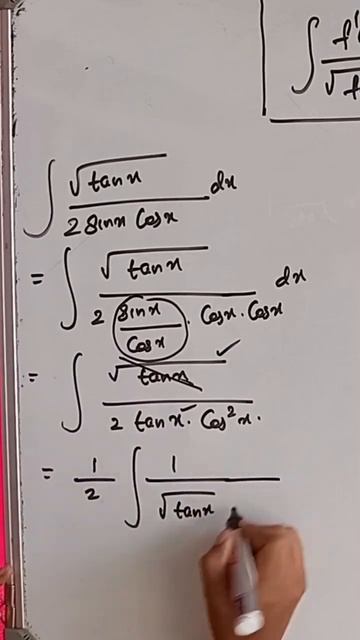 ∫ f'
√f
∫ √tanx / 2 Sinx Cosx dx
= ∫ √tanx / 2 Sinx/Cosx · Cosx · Cosx dx
= ∫ √tanx / 2 tanx · Cos²x ·
= 1/2 ∫ 1 / √tanx